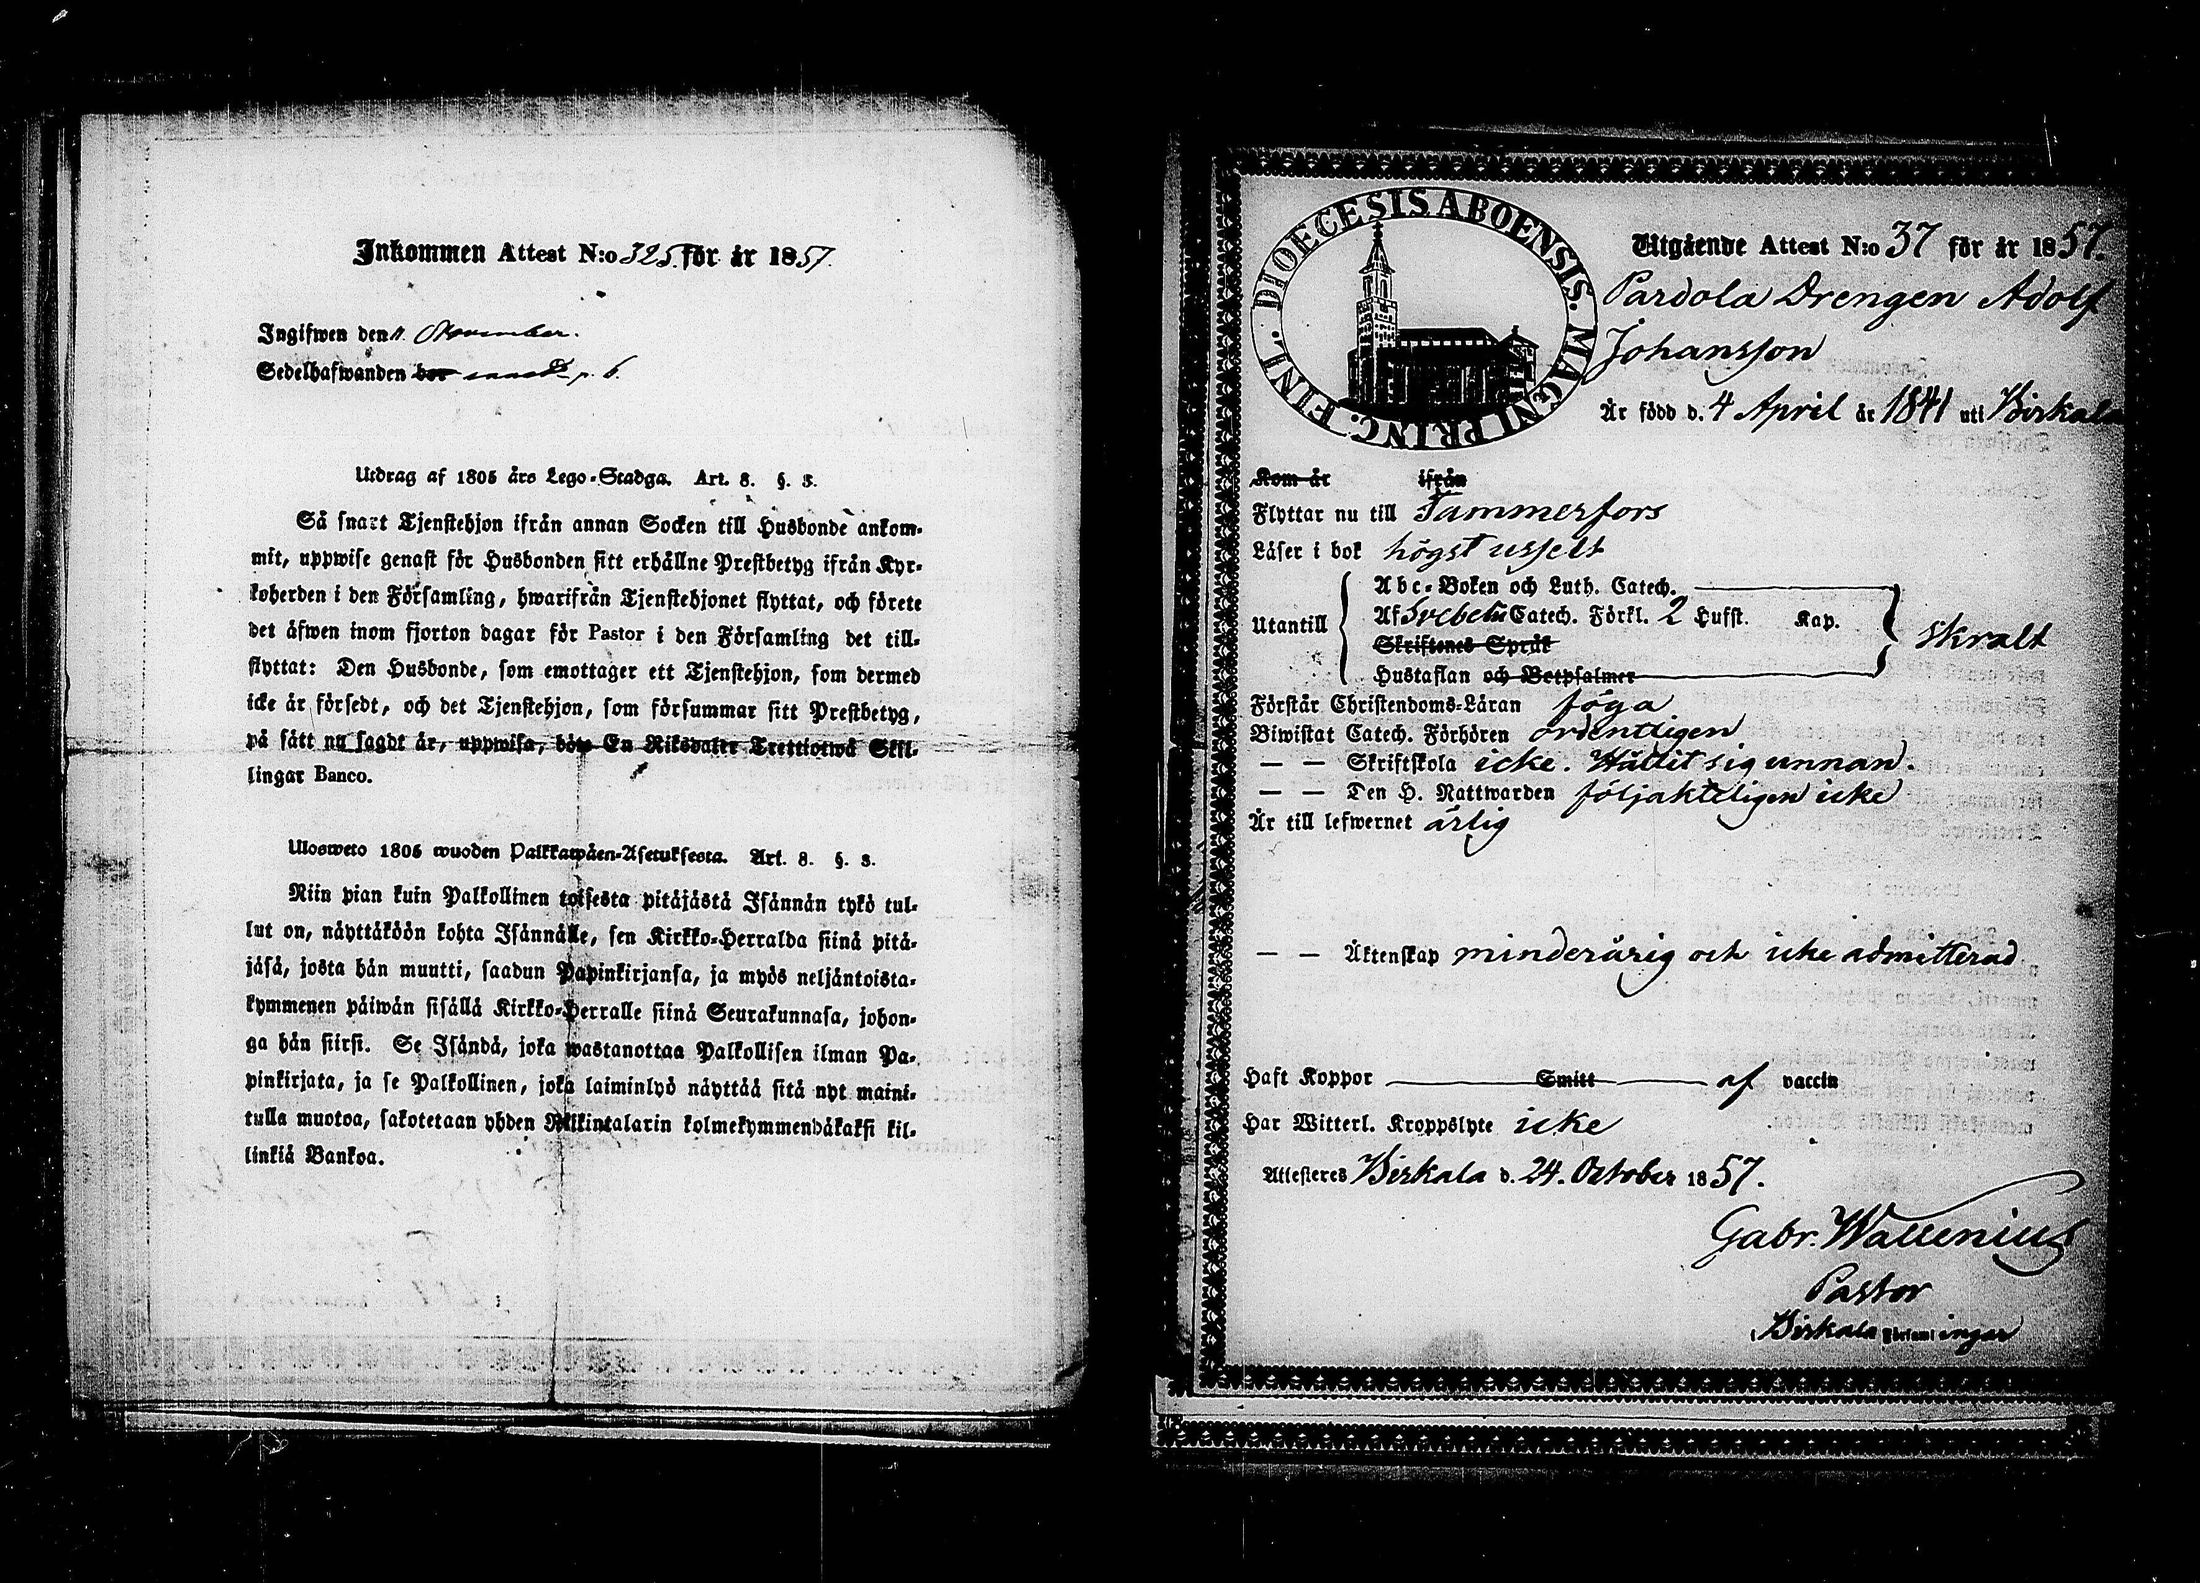 Inkommen Attest N:o 325. för år 1857.
Ingifwen den 11. November.
Sedelhafwanden bor p. 6.
Utdrag af 1805 års Lego-Stadga. Art. 8. §. 3.
Så snart Tjenstehjon ifrån annan Socken till Husbonde ankom-
mit, uppwise genast för Husbonden sitt erhållne Prestbetyg ifrån Kyr-
koherden i den Församling, hwarifrån Tjenstehjonet flyttat, och förete
det äfwen inom fjorton dagar för Pastor i den Församling det till-
flyttat: Den Husbonde, som emottager ett Tjenstehjon, som dermed
icke är försedt, och det Tjenstehjon, som försummar sitt Prestbetyg,
på sätt nu sagdt är, uppwisa, böte En Riksdaler Trettiotwå Skil-
lingar Banco.
Ulosweto 1805 wuoden Palkkawäen-Asetuksesta. Art. 8. §. 3.
Niin pian kuin Palkollinen toisesta pitäjästä Isännän tykö tul-
lut on, näyttäköön kohta Isännälle, sen Kirkko-Herralda siinä pitä-
jäsä, josta hän muutti, saadun Papinkirjansa, ja myös neljäntoista-
kymmenen päiwän sisällä Kirkko-Herralle siinä Seurakunnasa, johon-
ga hän siirsi. Se Isändä, joka wastanottaa Palkollisen ilman Pa-
pinkirjata, ja se Palkollinen, joka laiminlyö näyttää sitä nyt maini-
tulla muotoa, sakotetaan yhden Riikintalarin kolmekymmendäkaksi kil-
linkiä Bankoa.
DIOECESIS ABOENSIS. MAGNI PRINC. FINL.
Utgående Attest N:o 37 för år 1857.
Pardola Drengen Adolf
Johansson
Är född d. 4 April år 1841 uti Birkala
Kom år ifrån
Flyttar nu till Tammerfors
Läser i bok högst usselt
Abc-Boken och Luth. Catech.
Utantill Af Svebelii Catech. Förkl. 2 Hufst. Kap. skralt
Skriftenes Språk
Hustaflan och Botpsalmer
Förstår Christendoms-Läran föga
Biwistat Catech. Förhören ordentligen
— — Skriftskola icke. Hållit sig unnan.
— — Den H. Nattwarden följakteligen icke
Är till lefwernet ärlig
— — Äktenskap minderårig och icke admitterad
Haft Koppor Smitt af vaccin
Har Witterl. Kroppslyte icke
Attesteres Birkala d. 24. October 1857.
Gabr. Wallenius
Pastor
i Birkala Församlingar